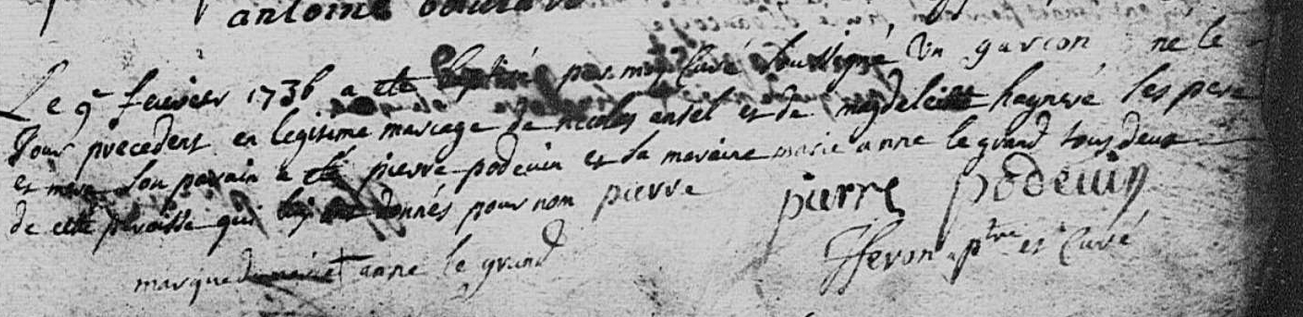 antoine
Le 9e feuvier 1736 a ete Baptisé par moy Curé soussigné Un garcon né le
Jour precedent en legitime mariage de nicolas antel et de magdeleine hayneré les pere
et mere son parain a ete pierre podevin et sa maraine marie anne le grand tous deux
de cette paroisse qui luy ont donnés pour nom pierre
pierre podevin
marque de marie + anne le grand
ptre et Curé